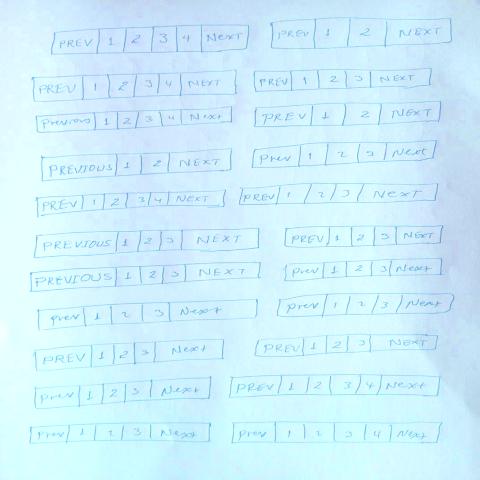 PREV 1 2 3 4 Next
PREV 1 2 NEXT
PREV 1 2 3 4 NEXT
PREV 1 2 3 NEXT
Previous 1 2 3 4 Next
PREV 1 2 NEXT
PREVIOUS 1 2 NEXT
Prev 1 2 3 Next
PREV 1 2 3 4 NEXT
PREV 1 2 3 NEXT
PREVIOUS 1 2 3 NEXT
PREV 1 2 3 NEXT
PREVIOUS 1 2 3 NEXT
prev 1 2 3 Next
prev 1 2 3 Next
prev 1 2 3 Next
PREV 1 2 3 Next
PREV 1 2 3 NEXT
Prev 1 2 3 Next
PREV 1 2 3 4 Next
Prev 1 2 3 Next
Prev 1 2 3 4 Next